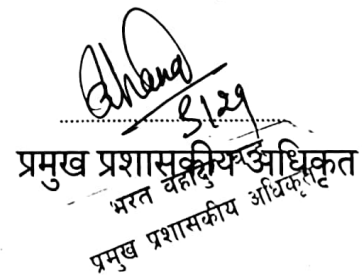 ५/२९
..............................
प्रमुख प्रशासकीय अधिकृत
भरत बहादुर चन्द
प्रमुख प्रशासकीय अधिकृत